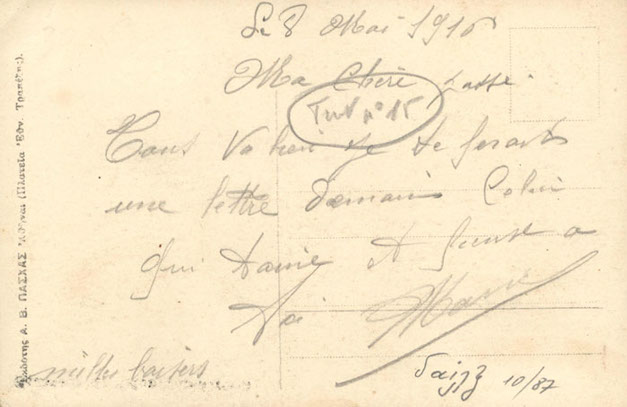 Le 8 Mai 1916
Ma Chere
n° 15
Tout va bien je te ferais
une lettre demain Celui
qui taime et pense a
toi
mille baisers
10/87
Ἐκδότης Α. Β. ΠΑΣΧΑΣ Ἀθῆναι (Πλατεῖα Ἐθν. Τραπέζης).